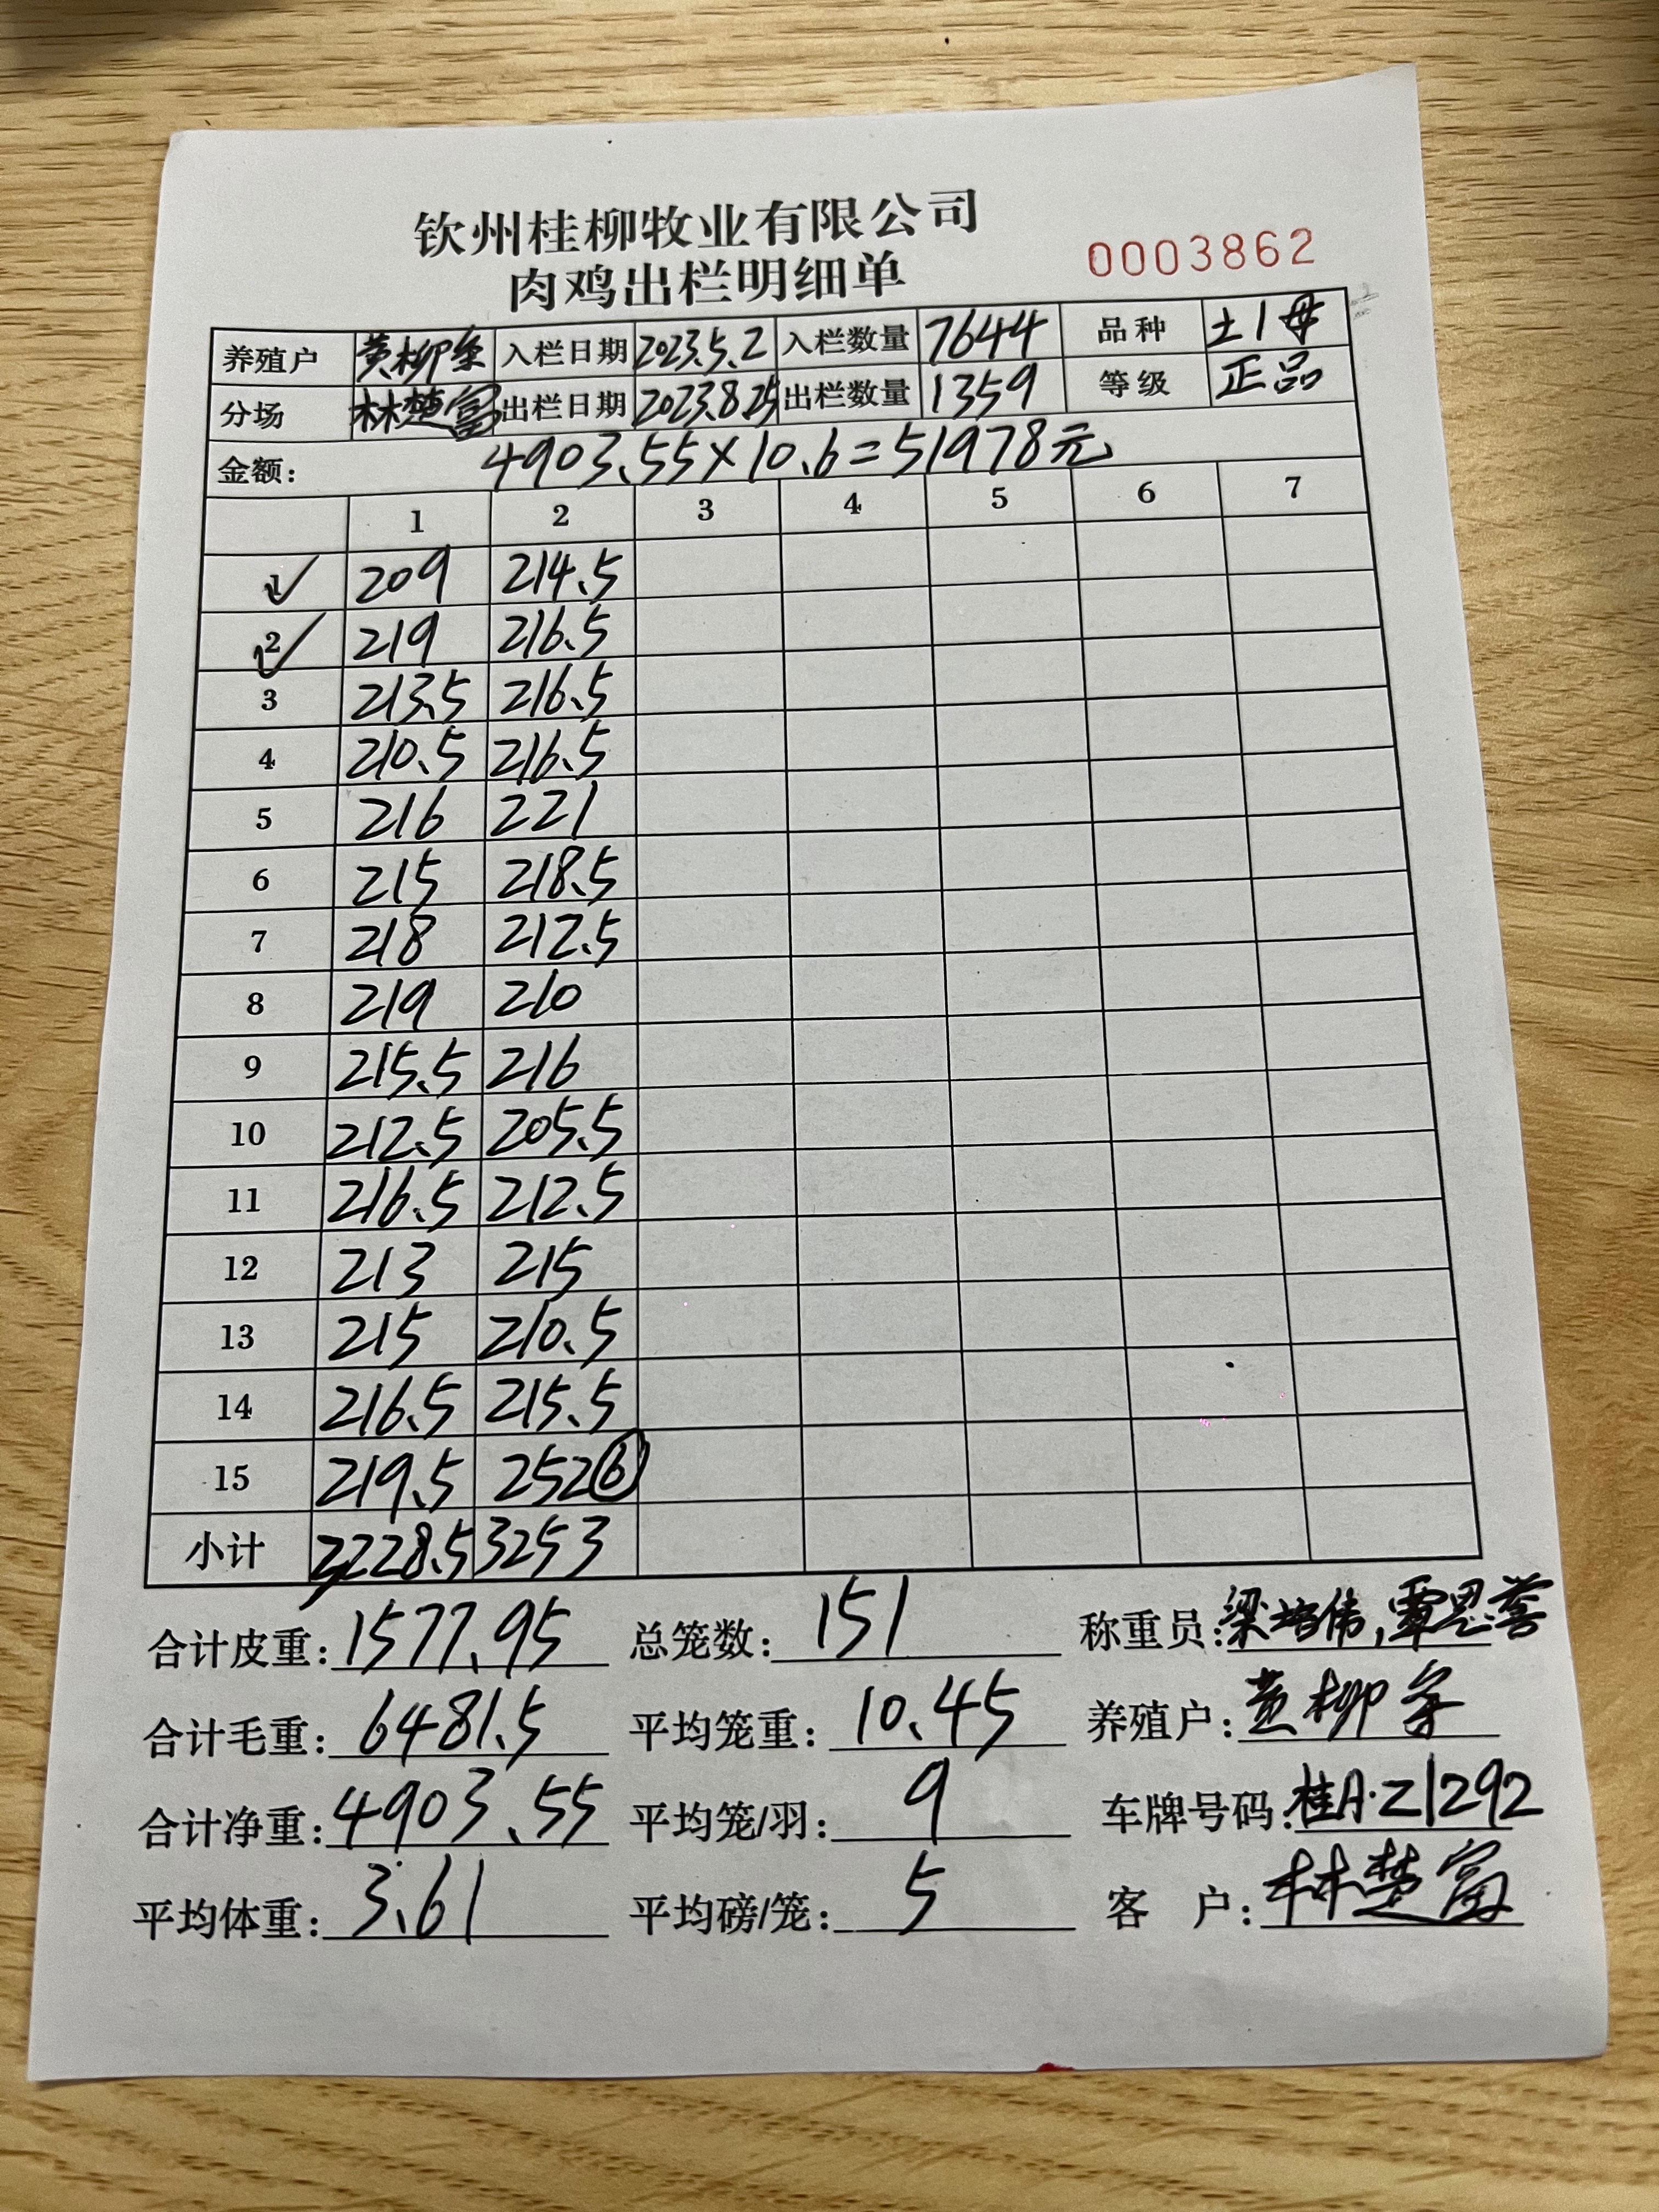 钦州桂柳牧业有限公司
肉鸡出栏明细单 0003862
养殖户 黄柳 入栏日期 2023.5.2 入栏数量 7644 品种 土1母
分场 林楚富 出栏日期 2023.8.25 出栏数量 1359 等级 正品
金额: 4903.55×10.6=51978元
1 2 3 4 5 6 7
1 209 214.5
2 219 216.5
3 213.5 216.5
4 210.5 216.5
5 216 221
6 215 218.5
7 218 212.5
8 219 210
9 215.5 216
10 212.5 205.5
11 216.5 212.5
12 213 215
13 215 210.5
14 216.5 215.5
15 219.5 252⑥
小计 3228.5 3253
合计皮重: 1577.95 总笼数: 151 称重员: 梁培伟, 覃恩誉
合计毛重: 6481.5 平均笼重: 10.45 养殖户: 黄柳
合计净重: 4903.55 平均笼/羽: 9 车牌号码: 桂A·Z1292
平均体重: 3.61 平均磅/笼: 5 客 户: 林楚富